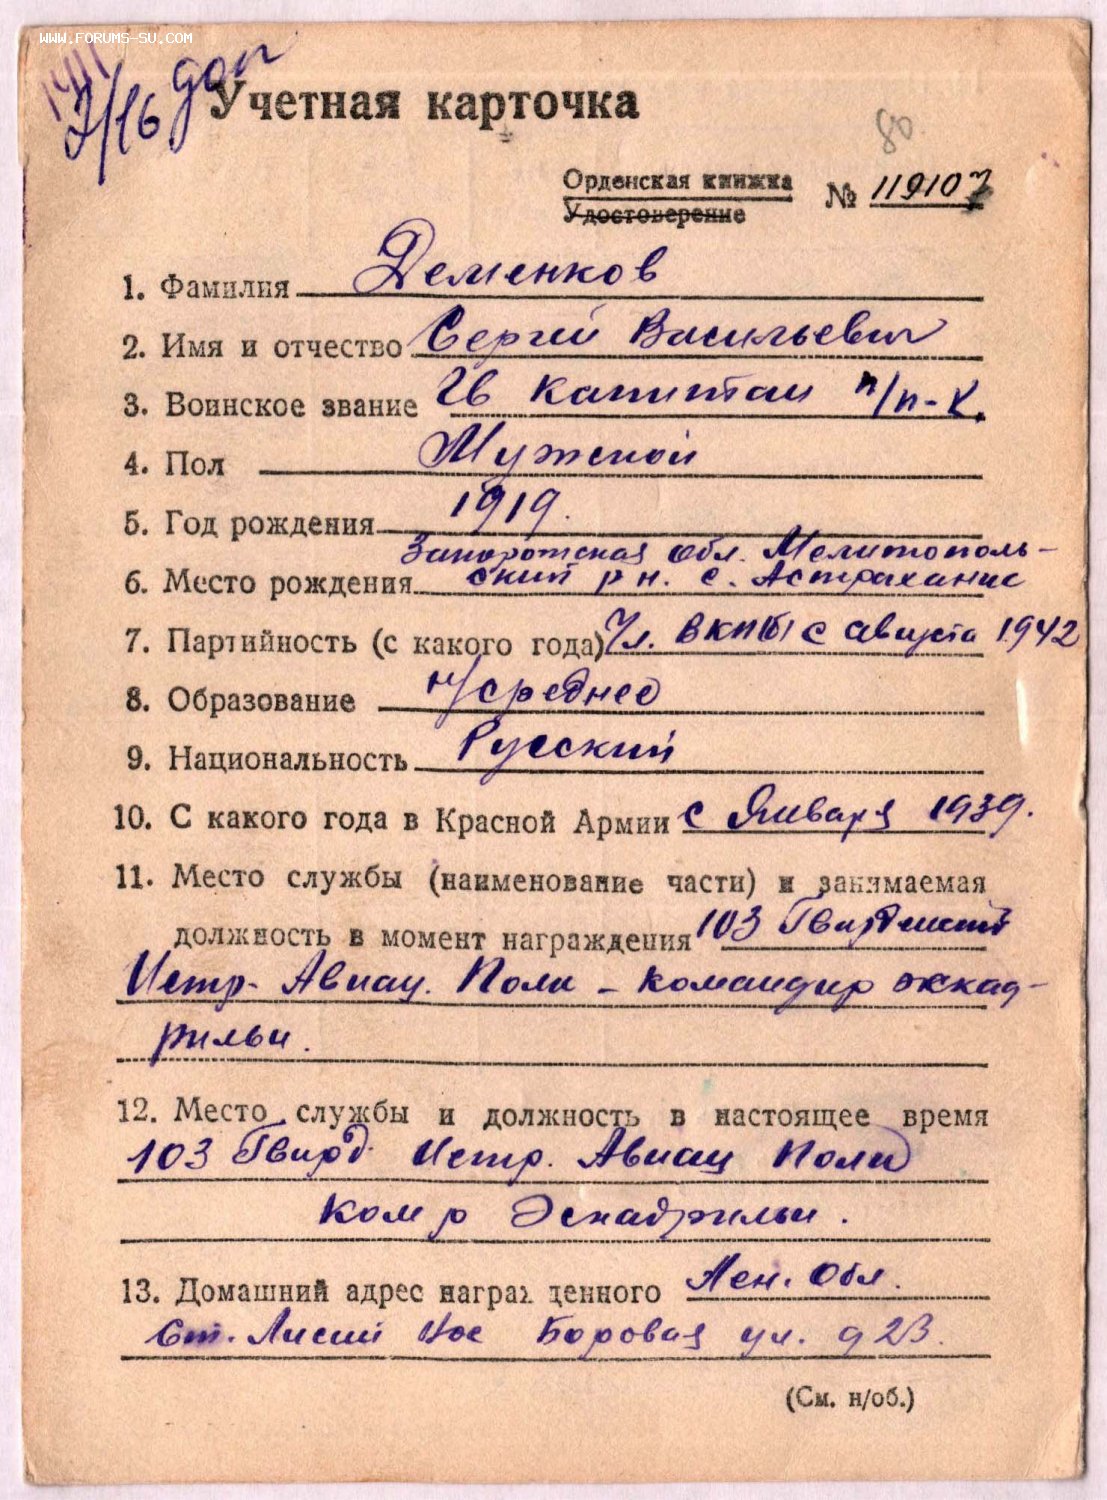 WWW.FORUMS-SU.COM
7/16 доп
Учетная карточка
80
Орденская книжка
Удостоверение
№ 119107
1. Фамилия Деменков
2. Имя и отчество Сергей Васильевич
3. Воинское звание Гв капитан п/п-к.
4. Пол Мужской
5. Год рождения 1919.
Запорожская обл. Мелитополь-
6. Место рождения ский р н. с. Астрахание
7. Партийность (с какого года) Чл. ВКП(б) с августа 1942
8. Образование н/среднее
9. Национальность Русский
10. С какого года в Красной Армии с Января 1939.
11. Место службы (наименование части) и занимаемая
должность в момент награждения 103 Гвардейский
Истр. Авиац. Полк - командир эскад-
рильи.
12. Место службы и должность в настоящее время
103 Гвард. Истр. Авиац Полк
Ком р Эскадрильи.
13. Домашний адрес награжденного Лен. Обл.
Ст. Лисий Нос Боровая ул. д 23.
(См. н/об.)